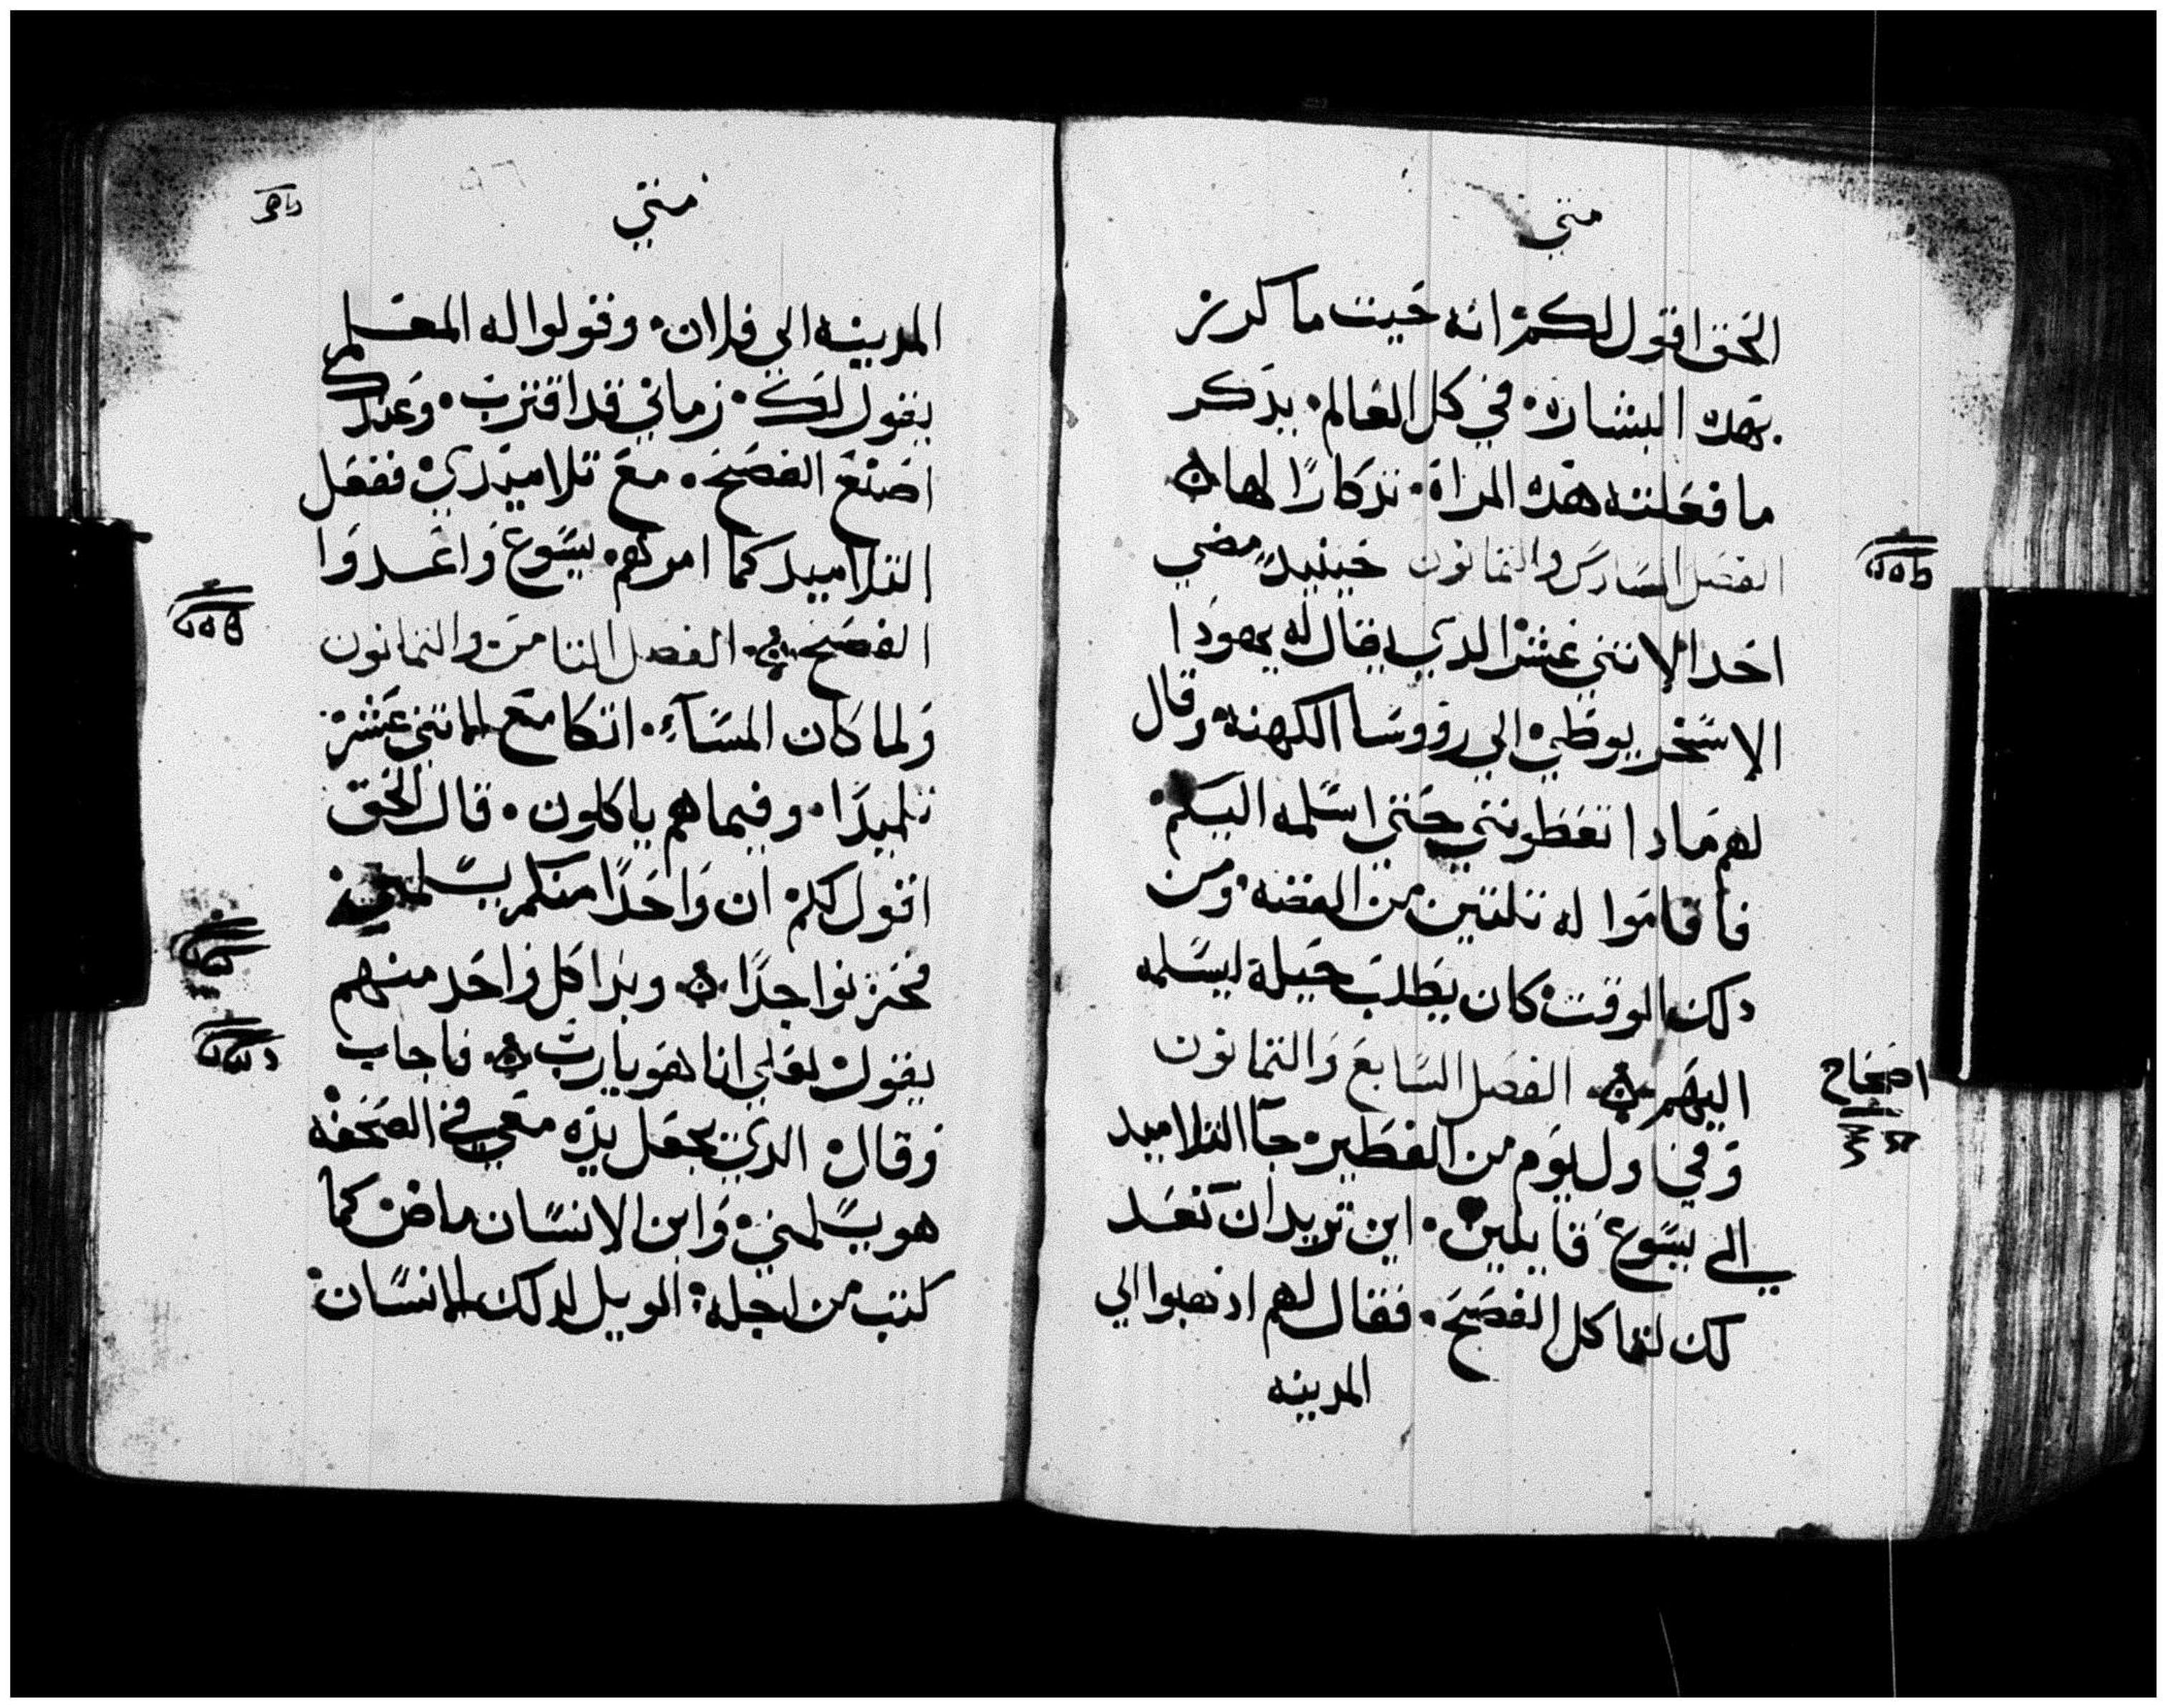 متي
الحق اقول لكم انه حيت ما كرز
بهده البشاره في كل العالم يدكر
ما فعلته هده المراة تدكارًا لها
الفصل السادس والتمانون حينيدٍ مضي
احد الاتني عشر الدي يقال له يهودا
الاسخريوطي الي رووسا الكهنه وقال
لهم مادا تعطوني حتي اسلمه اليكم
فاقاموا له تلتين من الفضه ومن
دلك الوقت كان يطلب حيلة ليسلمه
اليهم الفصل السابع والتمانون
اصحاح
وفي اول يوم من الفطير جآ التلاميد
الي يسوع قايلين اين تريد ان نعد
لك لتاكل الفصح فقال لهم ادهبوا الي
المدينه
متي
المدينه الي فلان وقولوا له المعلم
يقول لك زماني قد اقترب وعندك
اصنع الفصح مع تلاميدي ففعل
التلاميد كما امرهم يسوع واعدوا
الفصح الفصل التامن والتمانون
ولما كان المسآء اتكا مع الاتني عشر
تلميدًا وفيما هم ياكلون قال الحق
اقول لكم ان واحدًا منكم يسلمني
فحزنوا جدًا وبدا كل واحد منهم
يقول لعلي انا هو يارب فاجاب
وقال الدي يجعل يده معي في الصحفه
هو يسلمني وابن الانسان ماض كما
كتب من اجله الويل لدلك الانسان